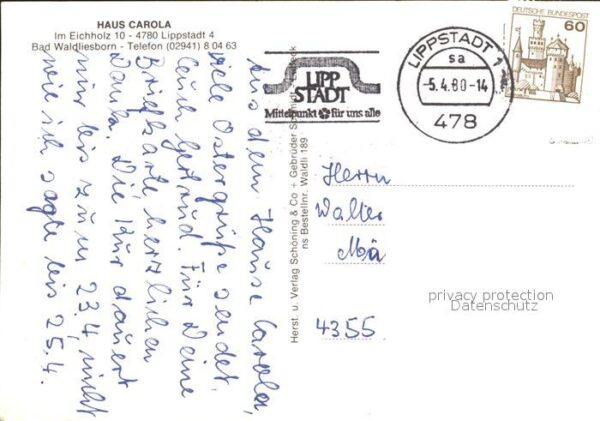 HAUS CAROLA
Im Eichholz 10 - 4780 Lippstadt 4
Bad Waldliesborn - Telefon (02941) 8 04 63
LIPP
STADT
Mittelpunkt für uns alle
LIPPSTADT 1
sa
-5.4.80-14
478
DEUTSCHE BUNDESPOST
60
Aus dem Hause Carola,
viele Ostergrüße sendet,
auch Gertrud. Für Deine
Briefkarte herzlichen
Dank. Die Kur dauert
nur bis zum 23.4, nicht
wie ich sagte bis 25.4.
Herst. u. Verlag Schöning & Co + Gebrüder Schmidt
ns Bestellnr. Waldli 189
Herrn
Walter
Mä
4355
privacy protection
Datenschutz